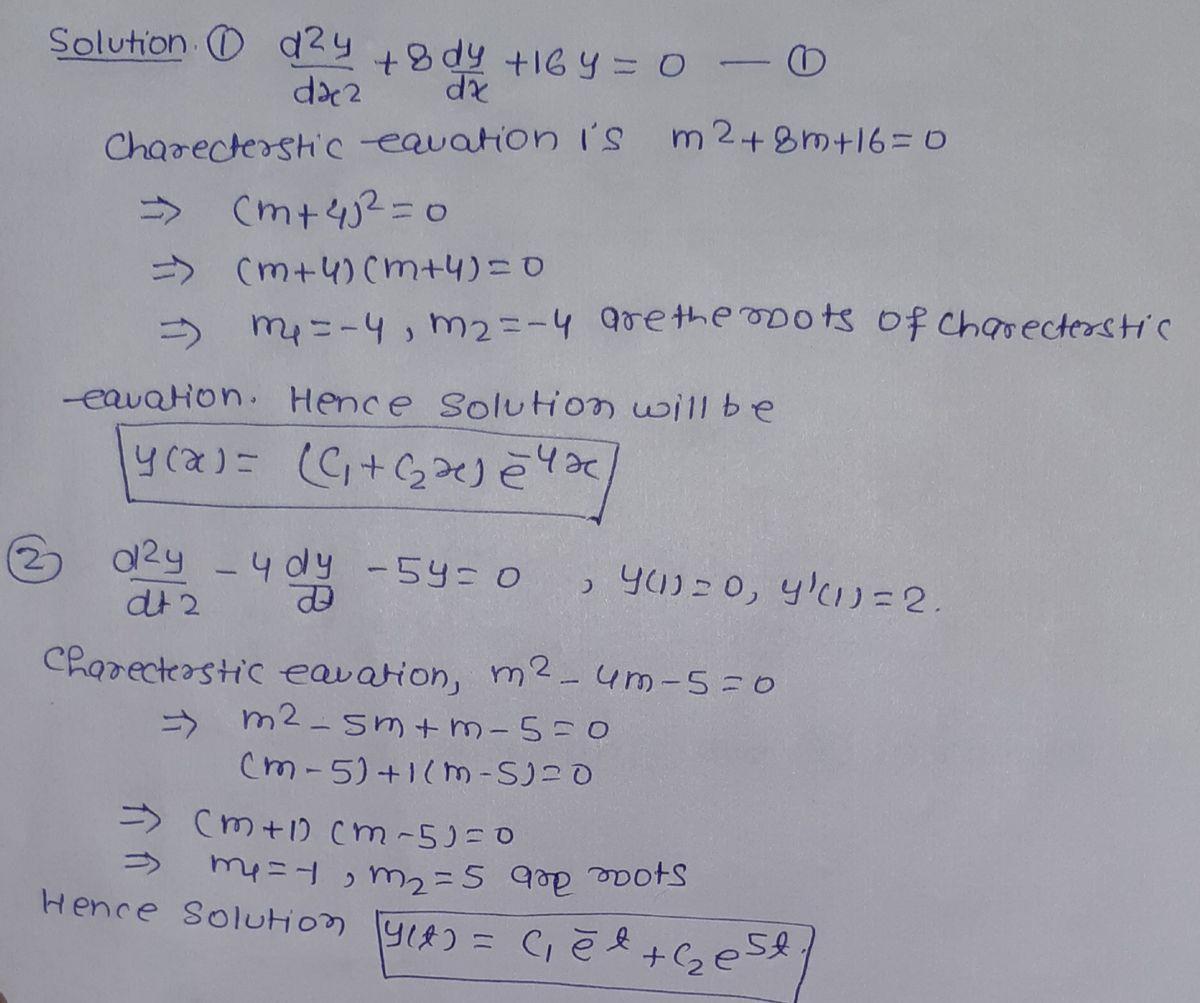 Solution. ① d2y/dx2 + 8 dy/dx + 16y = 0 — ①
Charecterstic equation is m2+8m+16=0
⇒ (m+4)² = 0
⇒ (m+4)(m+4)=0
⇒ m1=-4, m2=-4 are the roots of charecterstic
equation. Hence solution will be
y(x) = (C₁+C₂x) e⁻⁴ˣ
② d2y/dt2 - 4 dy/dt - 5y = 0 , y(1)=0, y'(1)=2.
Charecterstic equation, m2-4m-5=0
⇒ m2-5m+m-5=0
(m-5)+1(m-5)=0
⇒ (m+1)(m-5)=0
⇒ m1=-1, m2=5 are roots
Hence solution y(t) = C₁ e⁻ᵗ + C₂ e⁵ᵗ.